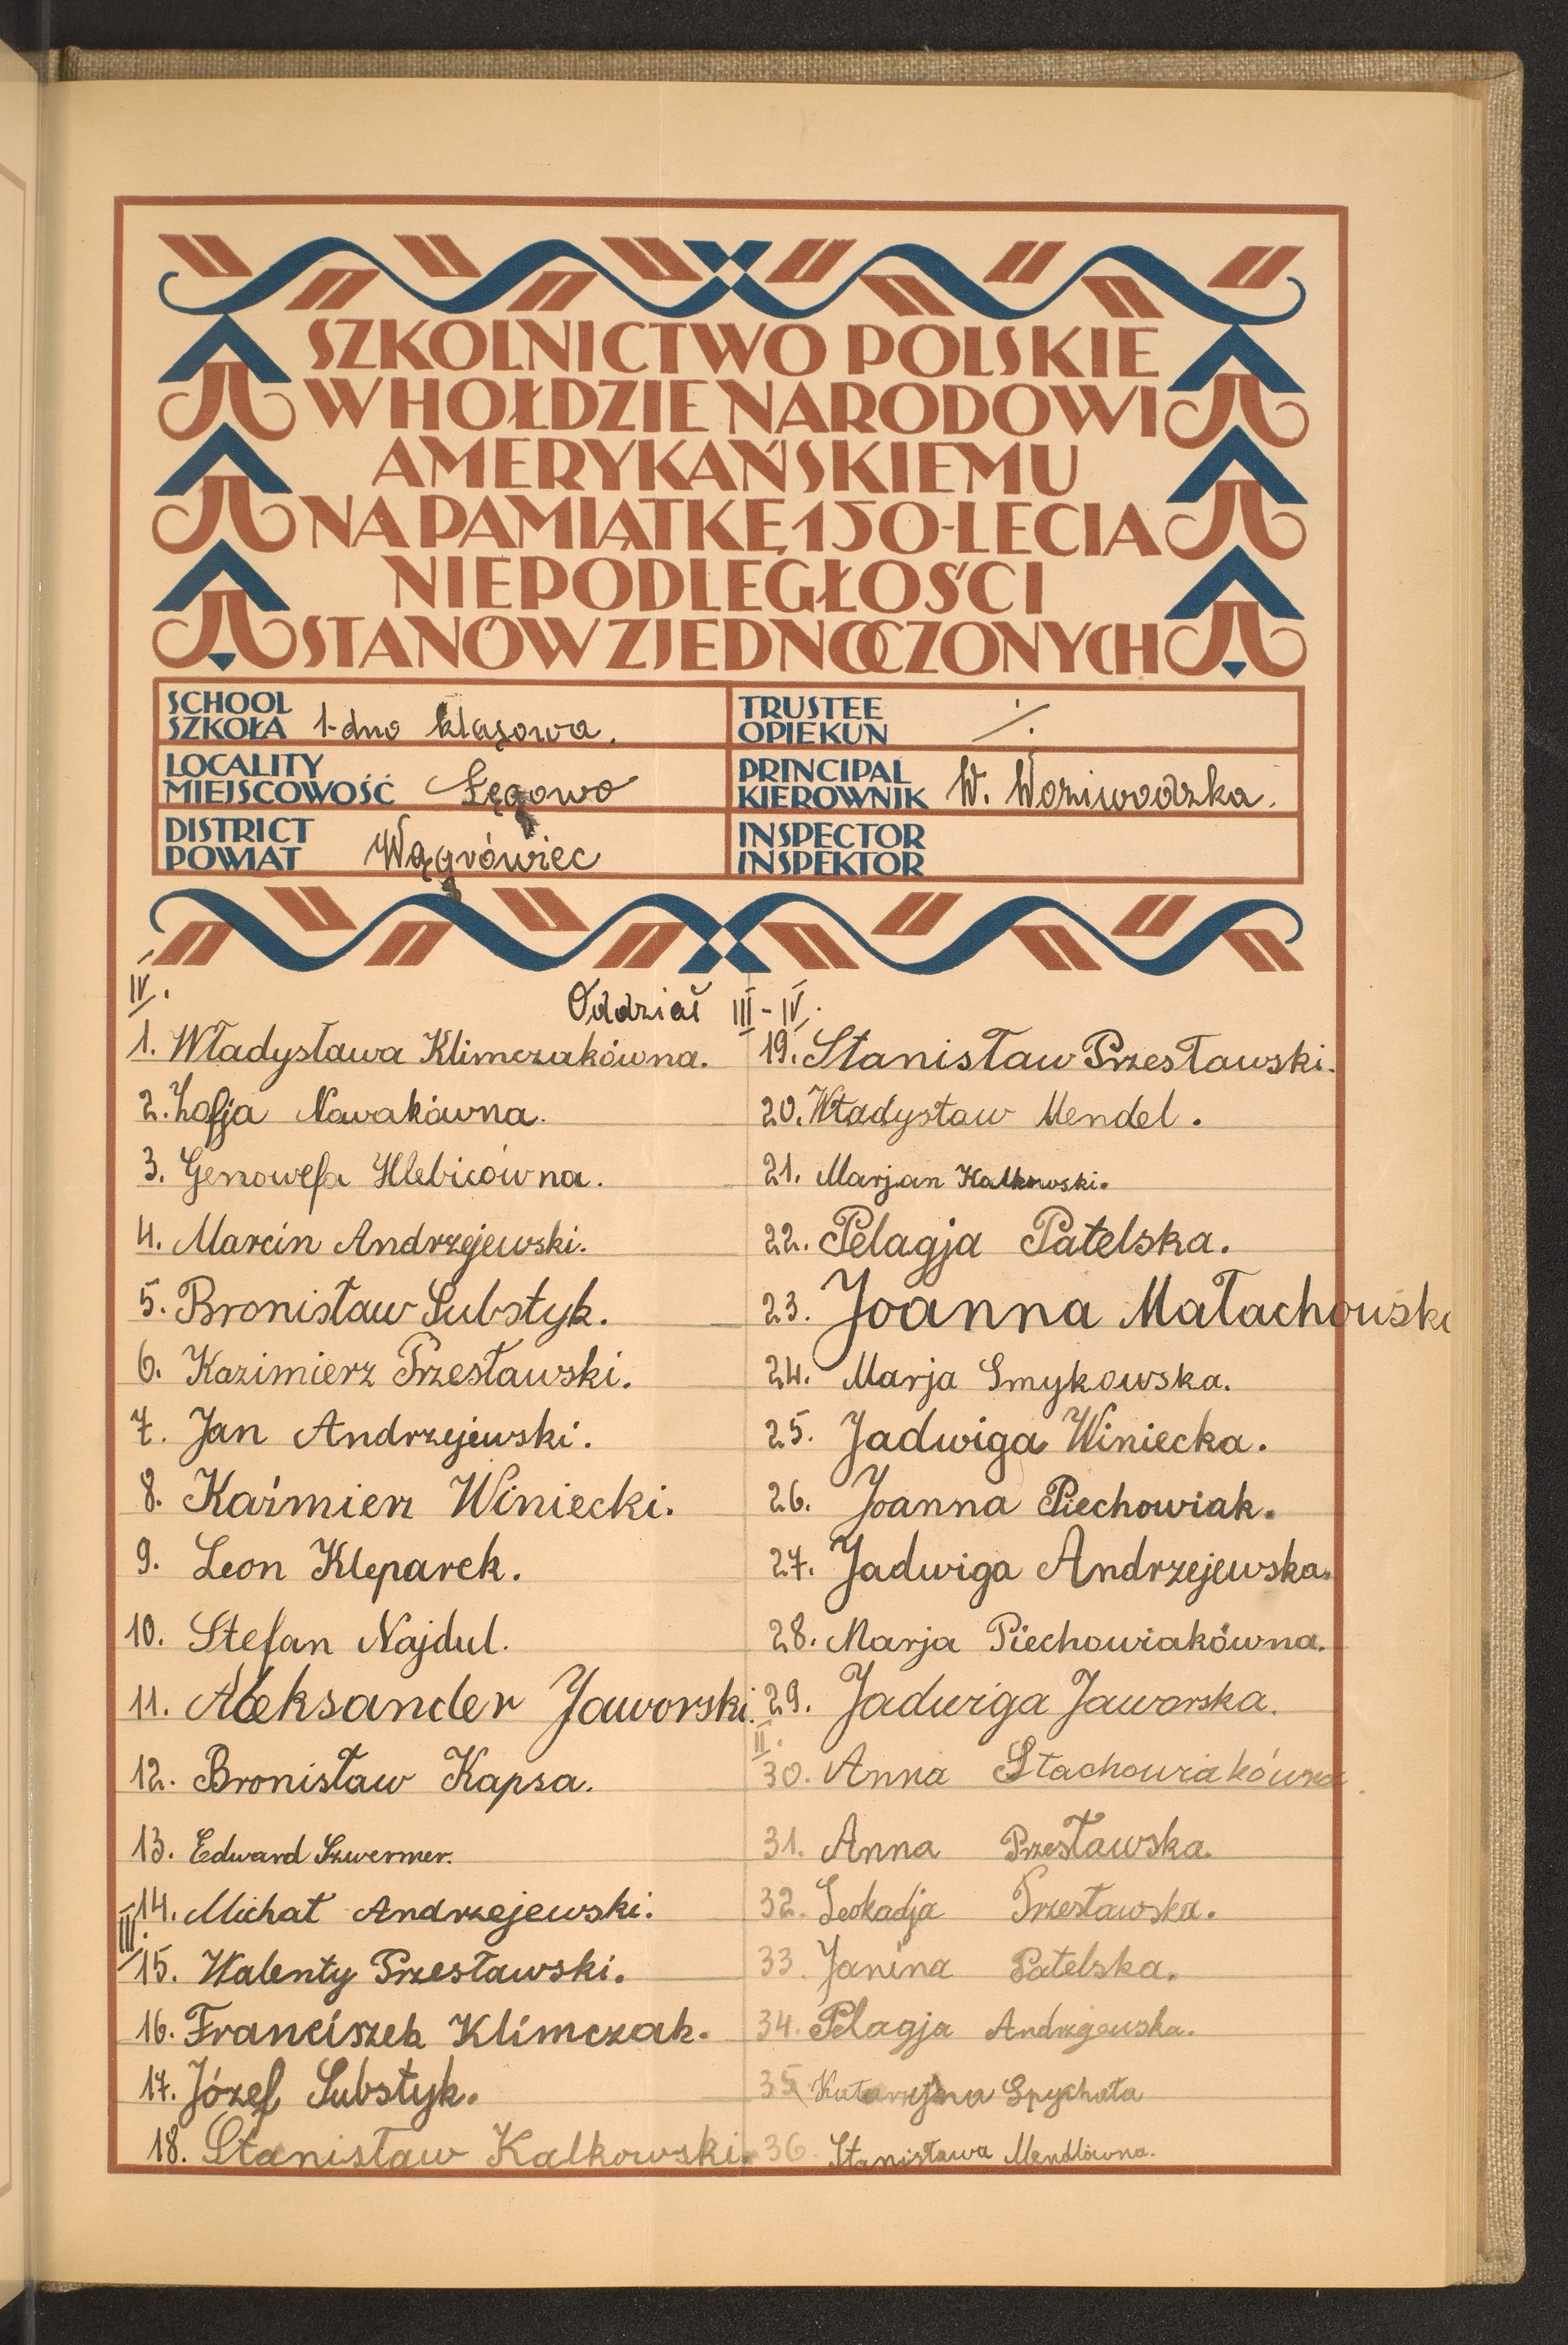 SZKOLNICTWO POLSKIE
W HOŁDZIE NARODOWI
AMERYKAŃSKIEMU
NA PAMIĄTKĘ 150-LECIA
NIEPODLEGŁOŚCI
STANÓW ZJEDNOCZONYCH
SCHOOL
SZKOŁA 1-dno klasowa.
TRUSTEE
OPIEKUN
LOCALITY
MIEJSCOWOŚĆ Łęgowo
PRINCIPAL
KIEROWNIK W. Woziwodzka.
DISTRICT
POWIAT Wągrówiec
INSPECTOR
INSPEKTOR
IV.
Oddział III - IV.
1. Władysława Klimczakówna.
2. Zofja Nowakówna.
3. Genowefa Hlebicówna.
4. Marcin Andrzejewski.
5. Bronisław Substyk.
6. Kazimierz Przesławski.
7. Jan Andrzejewski.
8. Kaźmierz Winiecki.
9. Leon Kleparek.
10. Stefan Najdul.
11. Aleksander Jaworski.
12. Bronisław Kapsa.
13. Edward Szwermer.
14. Michał Andrzejewski.
III.
15. Walenty Przesławski.
16. Franciszek Klimczak.
17. Józef Substyk.
18. Stanisław Kalkowski.
19. Stanisław Przesławski.
20. Władysław Mendel.
21. Marjan Kalkowski.
22. Pelagja Patelska.
23. Joanna Małachowsk
24. Marja Smykowska.
25. Jadwiga Winiecka.
26. Joanna Piechowiak.
27. Jadwiga Andrzejewska.
28. Marja Piechowiakówna.
29. Jadwiga Jaworska.
II.
30. Anna Stachowiakówna.
31. Anna Przesławska.
32. Leokadja Przesławska.
33. Janina Patelska.
34. Pelagja Andrzejewska.
35 Katarzyna Spychała
36. Stanisława Mendlówna.